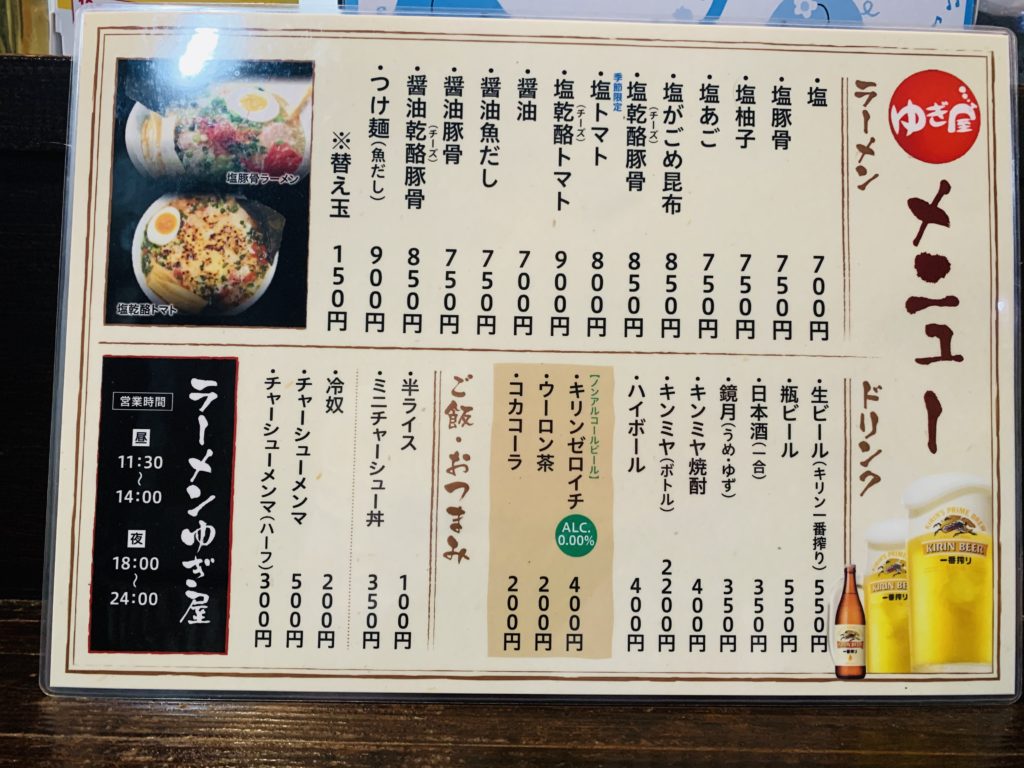 ゆぎ屋
メニュー
ラーメン
・塩 700円
・塩豚骨 750円
・塩柚子 750円
・塩あご 750円
・塩がごめ昆布 850円
・塩乾酪豚骨 (チーズ) 850円
季節限定
・塩トマト 800円
・塩乾酪トマト (チーズ) 900円
・醤油 700円
・醤油魚だし 750円
・醤油豚骨 750円
・醤油乾酪豚骨 (チーズ) 850円
・つけ麺(魚だし) 900円
※替え玉 150円
塩豚骨ラーメン
塩乾酪トマト
ドリンク
・生ビール(キリン一番搾り) 550円
・瓶ビール 550円
・日本酒(一合) 350円
・鏡月(うめ・ゆず) 350円
・キンミヤ焼酎 400円
・キンミヤ(ボトル) 2200円
・ハイボール 400円
【ノンアルコールビール】
・キリンゼロイチ 400円
ALC.
0.00%
・ウーロン茶 200円
・コカコーラ 200円
KIRIN BEER
一番搾り
ご飯・おつまみ
・半ライス 100円
・ミニチャーシュー丼 350円
・冷奴 200円
・チャーシューメンマ 500円
・チャーシューメンマ(ハーフ) 300円
ラーメンゆぎ屋
営業時間
昼
11:30
〜
14:00
夜
18:00
〜
24:00